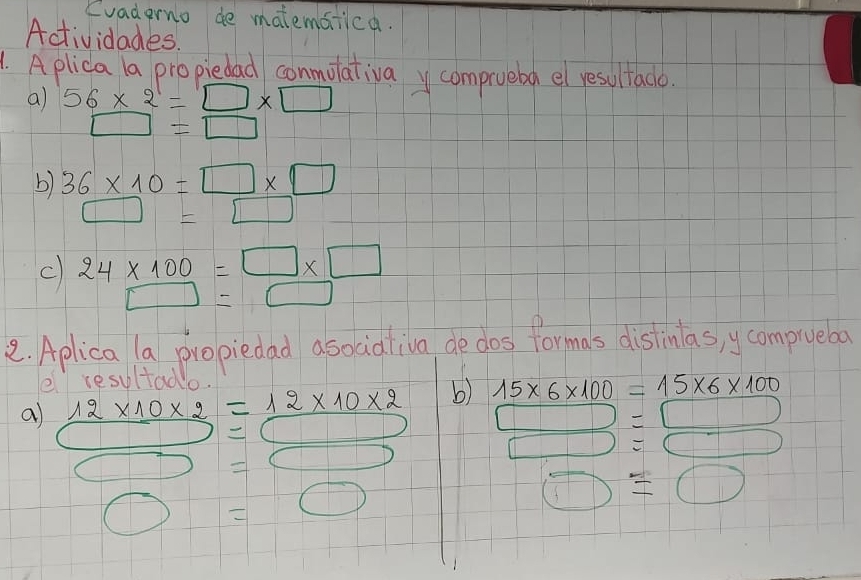 Cuaderno de matemática.
Actividades.
1. Aplica la propiedad conmutativa y comprueba el resultado.
a) 56 × 2 = □ × □
□ = □
b) 36 × 10 = □ × □
□ = □
c) 24 × 100 = □ × □
□ = □
2. Aplica la propiedad asociativa de dos formas distintas, y comprueba
el resultado.
a) 12 × 10 × 2 = 12 × 10 × 2
=
=
=
b) 15 × 6 × 100 = 15 × 6 × 100
=
=
=